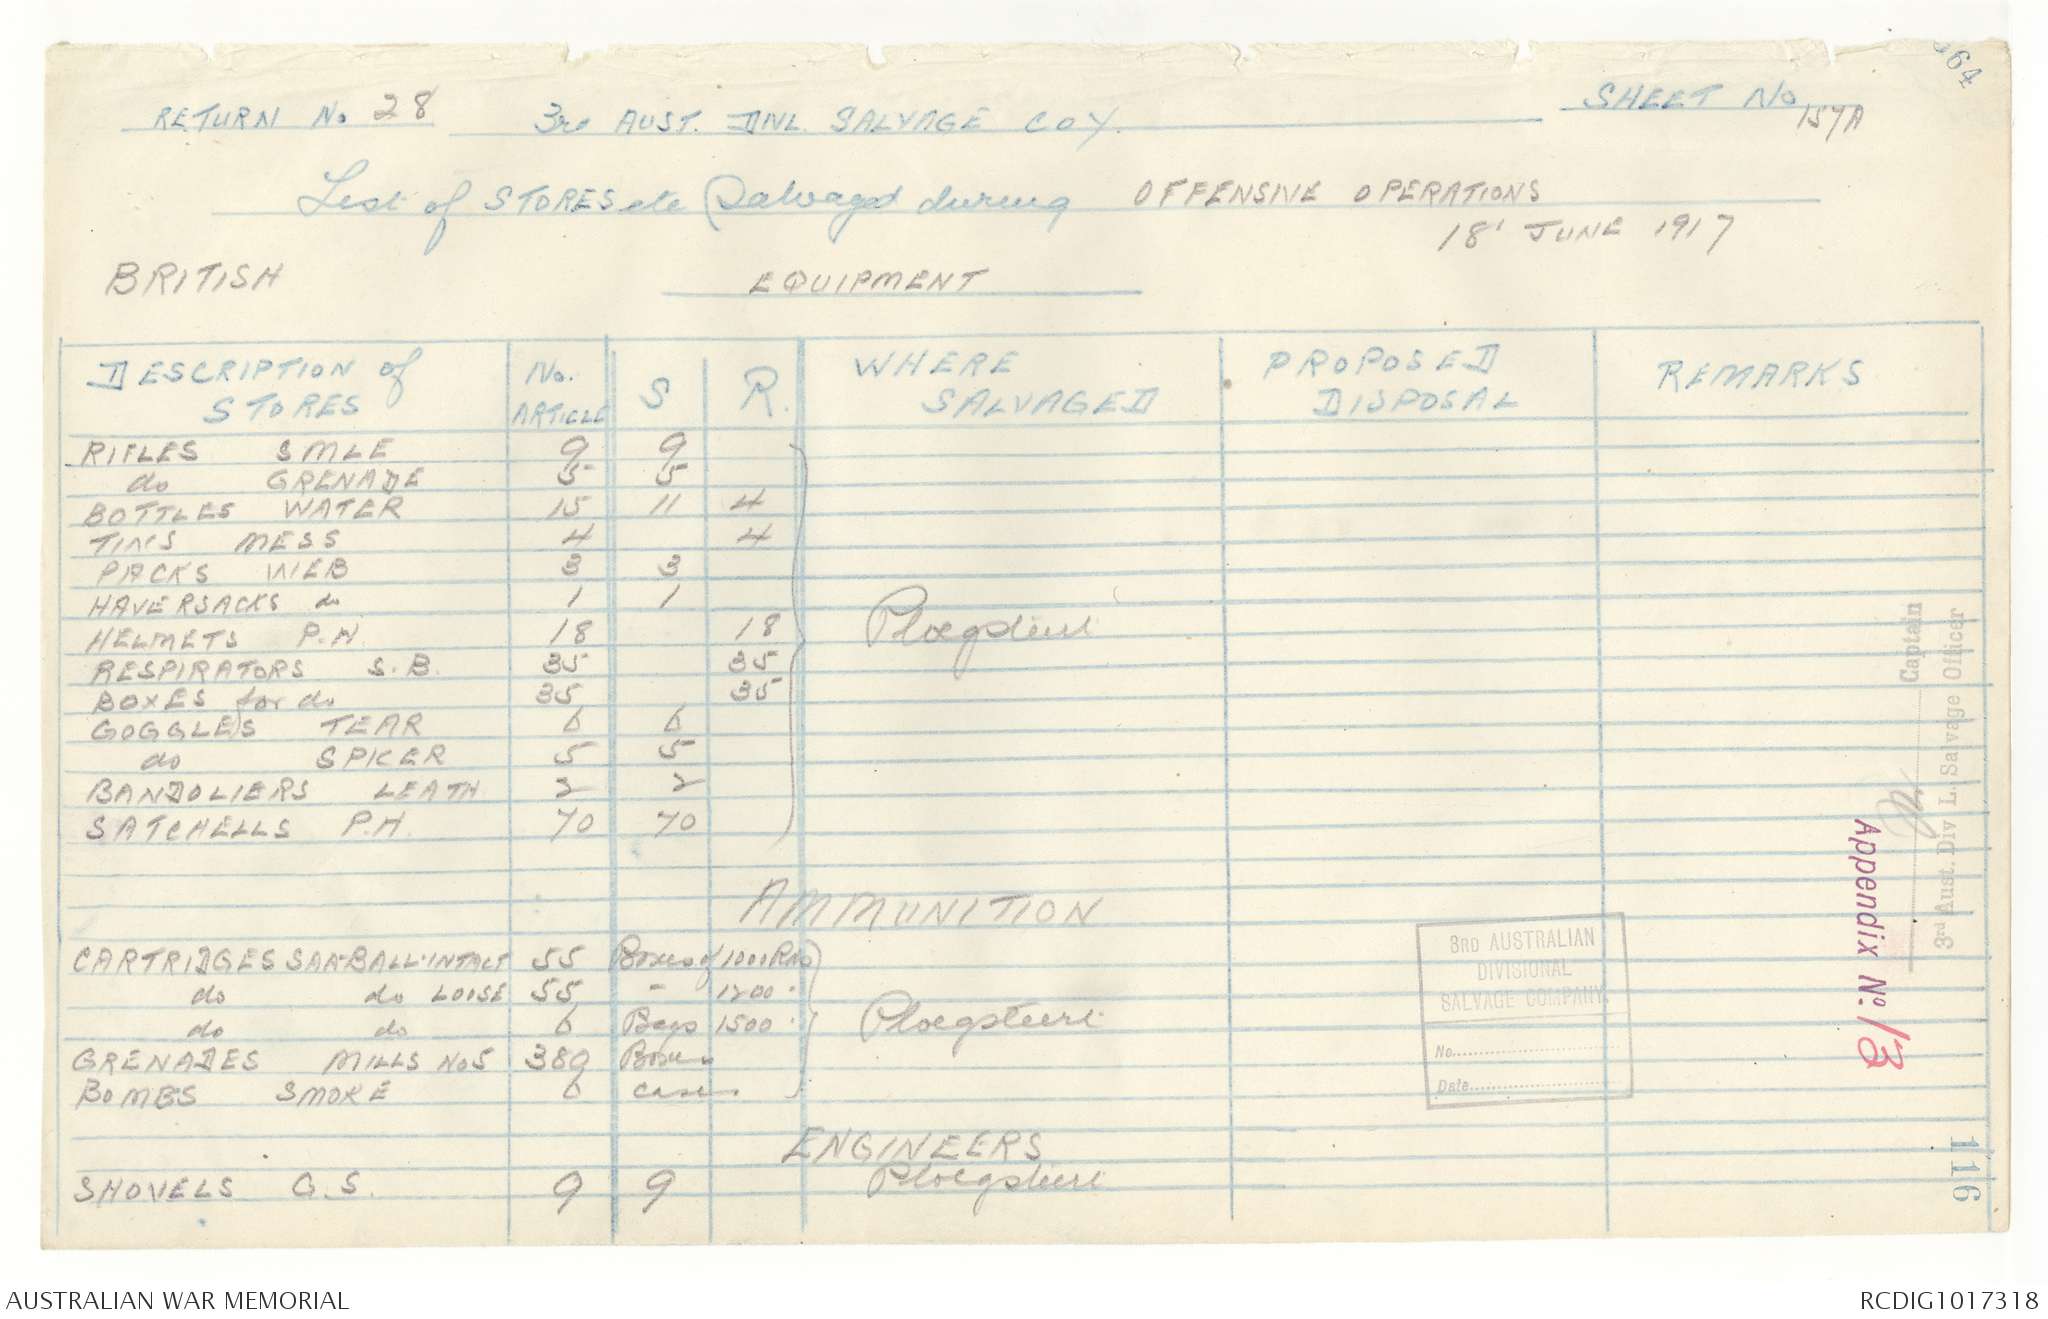 364
RETURN No 28 3RD AUST. DIVL. SALVAGE COY. SHEET No 157A
List of STORES etc Salvaged during OFFENSIVE OPERATIONS
18' JUNE 1917
BRITISH EQUIPMENT
DESCRIPTION of STORES No. ARTICLE S R. WHERE SALVAGED PROPOSED DISPOSAL REMARKS
RIFLES SMLE 9 9
do GRENADE 5 5
BOTTLES WATER 15 11 4
TINS MESS 4 4
PACKS WEB 3 3
HAVERSACKS do 1 1
HELMETS P.H. 18 18 Ploegsteert
RESPIRATORS S.B. 35 35
BOXES for do 35 35
GOGGLES TEAR 6 6
do SPICER 5 5
BANDOLIERS LEATH 2 2
SATCHELLS P.H. 70 70
AMMUNITION
CARTRIDGES SAA·BALL·INTACT 55 Boxes of 1000 RNDS
do do LOOSE 55 " 1200 "
do do 6 Bags 1500 " Ploegsteert
GRENADES MILLS No 5 389 Boxes
BOMBS SMOKE 6 cases
ENGINEERS
SHOVELS G.S. 9 9 Ploegsteert
Captain
3rd Aust. Div L. Salvage Officer
Appendix No. 13
3RD AUSTRALIAN
DIVISIONAL
SALVAGE COMPANY.
No.
Date
116
AUSTRALIAN WAR MEMORIAL RCDIG1017318